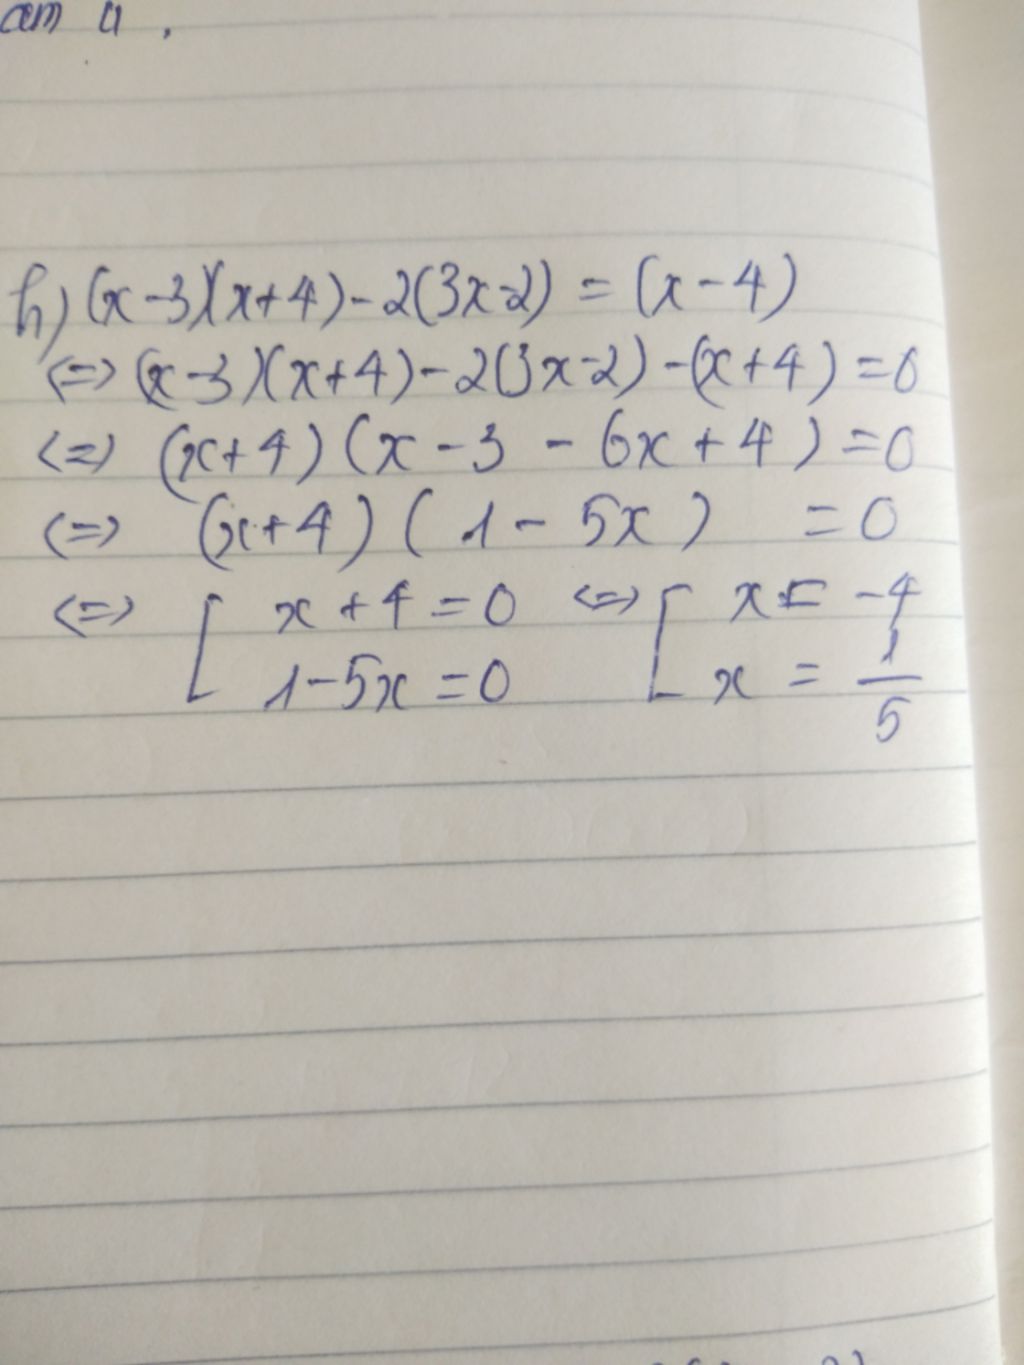 h) (x-3)(x+4)-2(3x-2) = (x-4)
<=> (x-3)(x+4)-2(3x-2)-(x+4)=0
<=> (x+4)(x-3 - 6x+4)=0
<=> (x+4)(1-5x) =0
<=> [ x+4=0 <=> [ x = -4
1-5x=0 x = 1/5